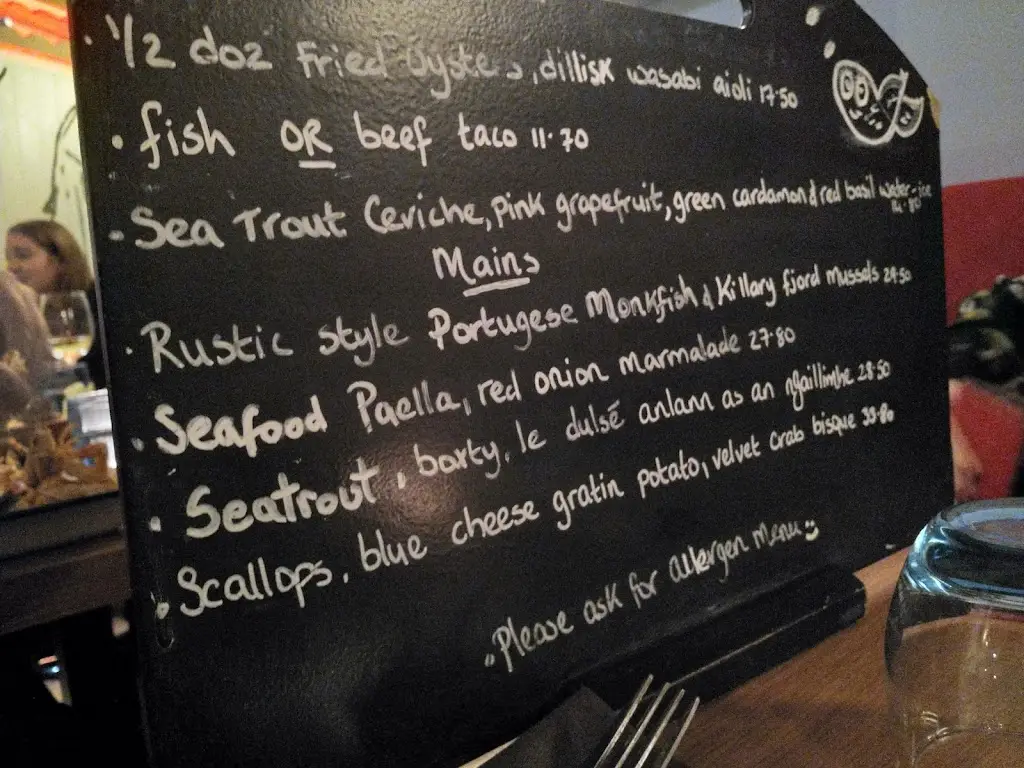 · 1/2 doz Fried Oysters, dillisk wasabi aioli 17·50
· fish OR beef taco 11·70
· Sea Trout Ceviche, pink grapefruit, green cardamon & red basil water-ice
Mains
· Rustic style Portugese Monkfish & Killary fjord Mussels
· Seafood Paella, red onion marmalade 27·80
· Seatrout, boxty, le dulsé anlann as an ngaillimhe 28·50
· Scallops, blue cheese gratin potato, velvet crab bisque
· Please ask for allergen menu